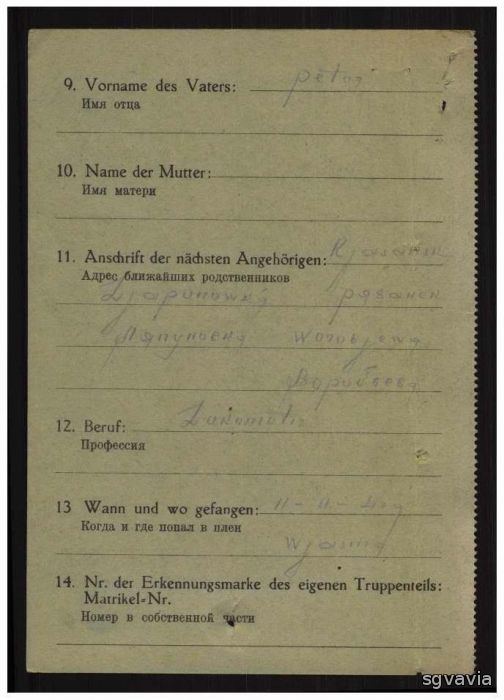 9. Vorname des Vaters:
Имя отца
10. Name der Mutter:
Имя матери
11. Anschrift der nächsten Angehörigen: Rjasanm
Адрес ближайших родственников
Ljapunowka рязанск
Ляпуновка Worobjewa
Воробьева
12. Beruf:
Профессия
13 Wann und wo gefangen: 11-11-41
Когда и где попал в плен
Wjasma
14. Nr. der Erkennungsmarke des eigenen Truppenteils:
Matrikel-Nr.
Номер в собственной части
sgvavia